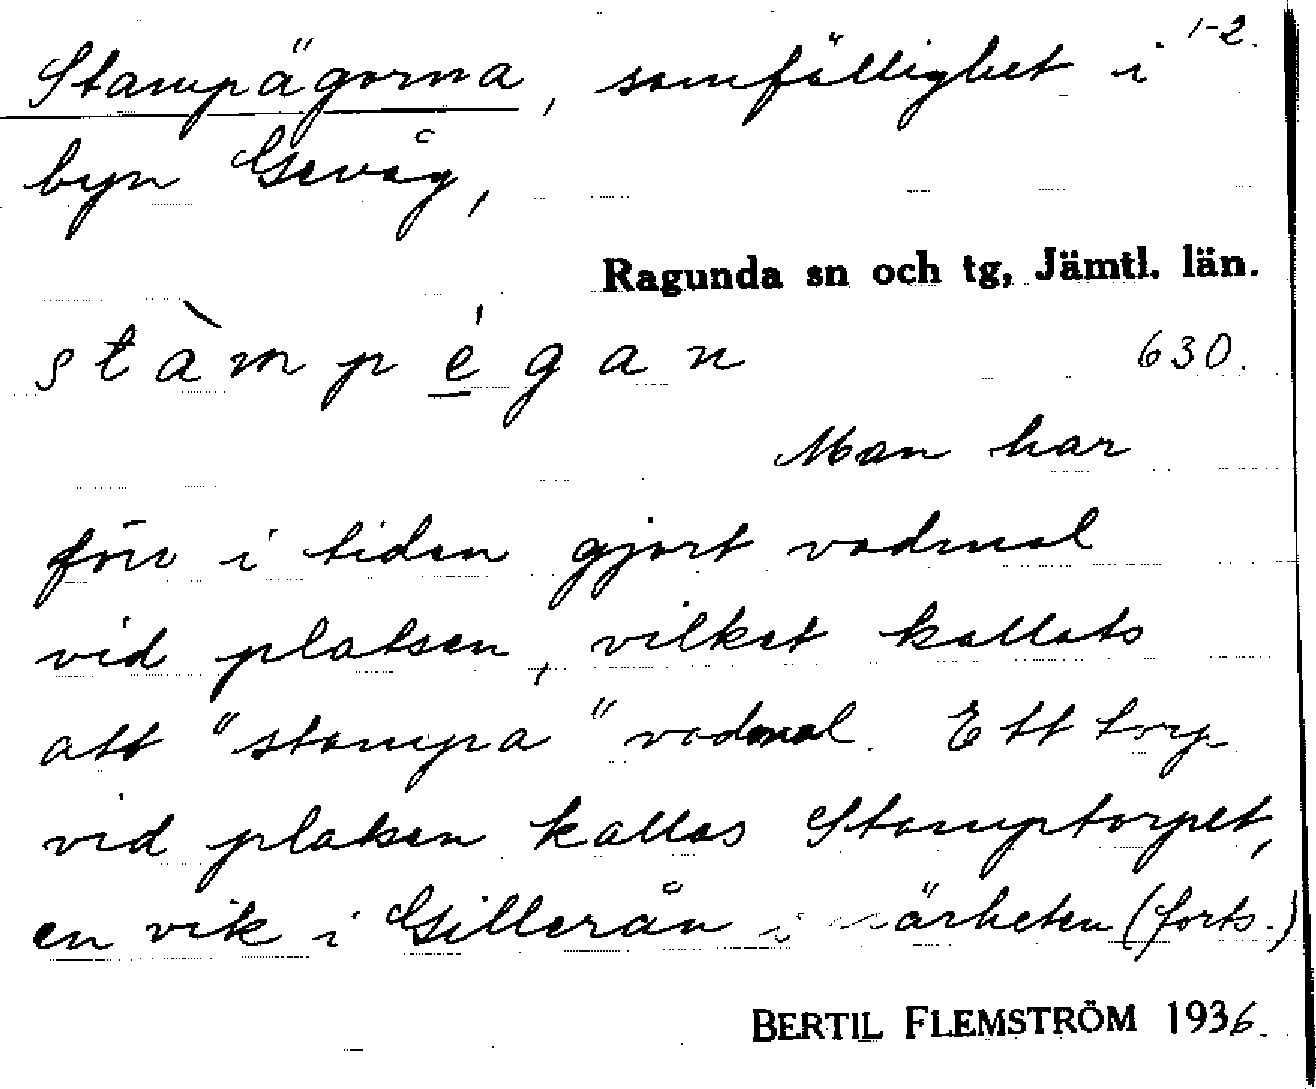 1-2.
Stampägorna, samfällighet i
byn Gevåg,
Ragunda sn och tg, Jämtl. län.
stàmpégan 630.
Man har
förr i tiden gjort vadmal
vid platsen, vilket kallats
att "stampa" vadmal. Ett torp
vid platsen kallas Stamptorpet,
en vik i Gillerån i närheten (forts.)
BERTIL FLEMSTRÖM 1936.